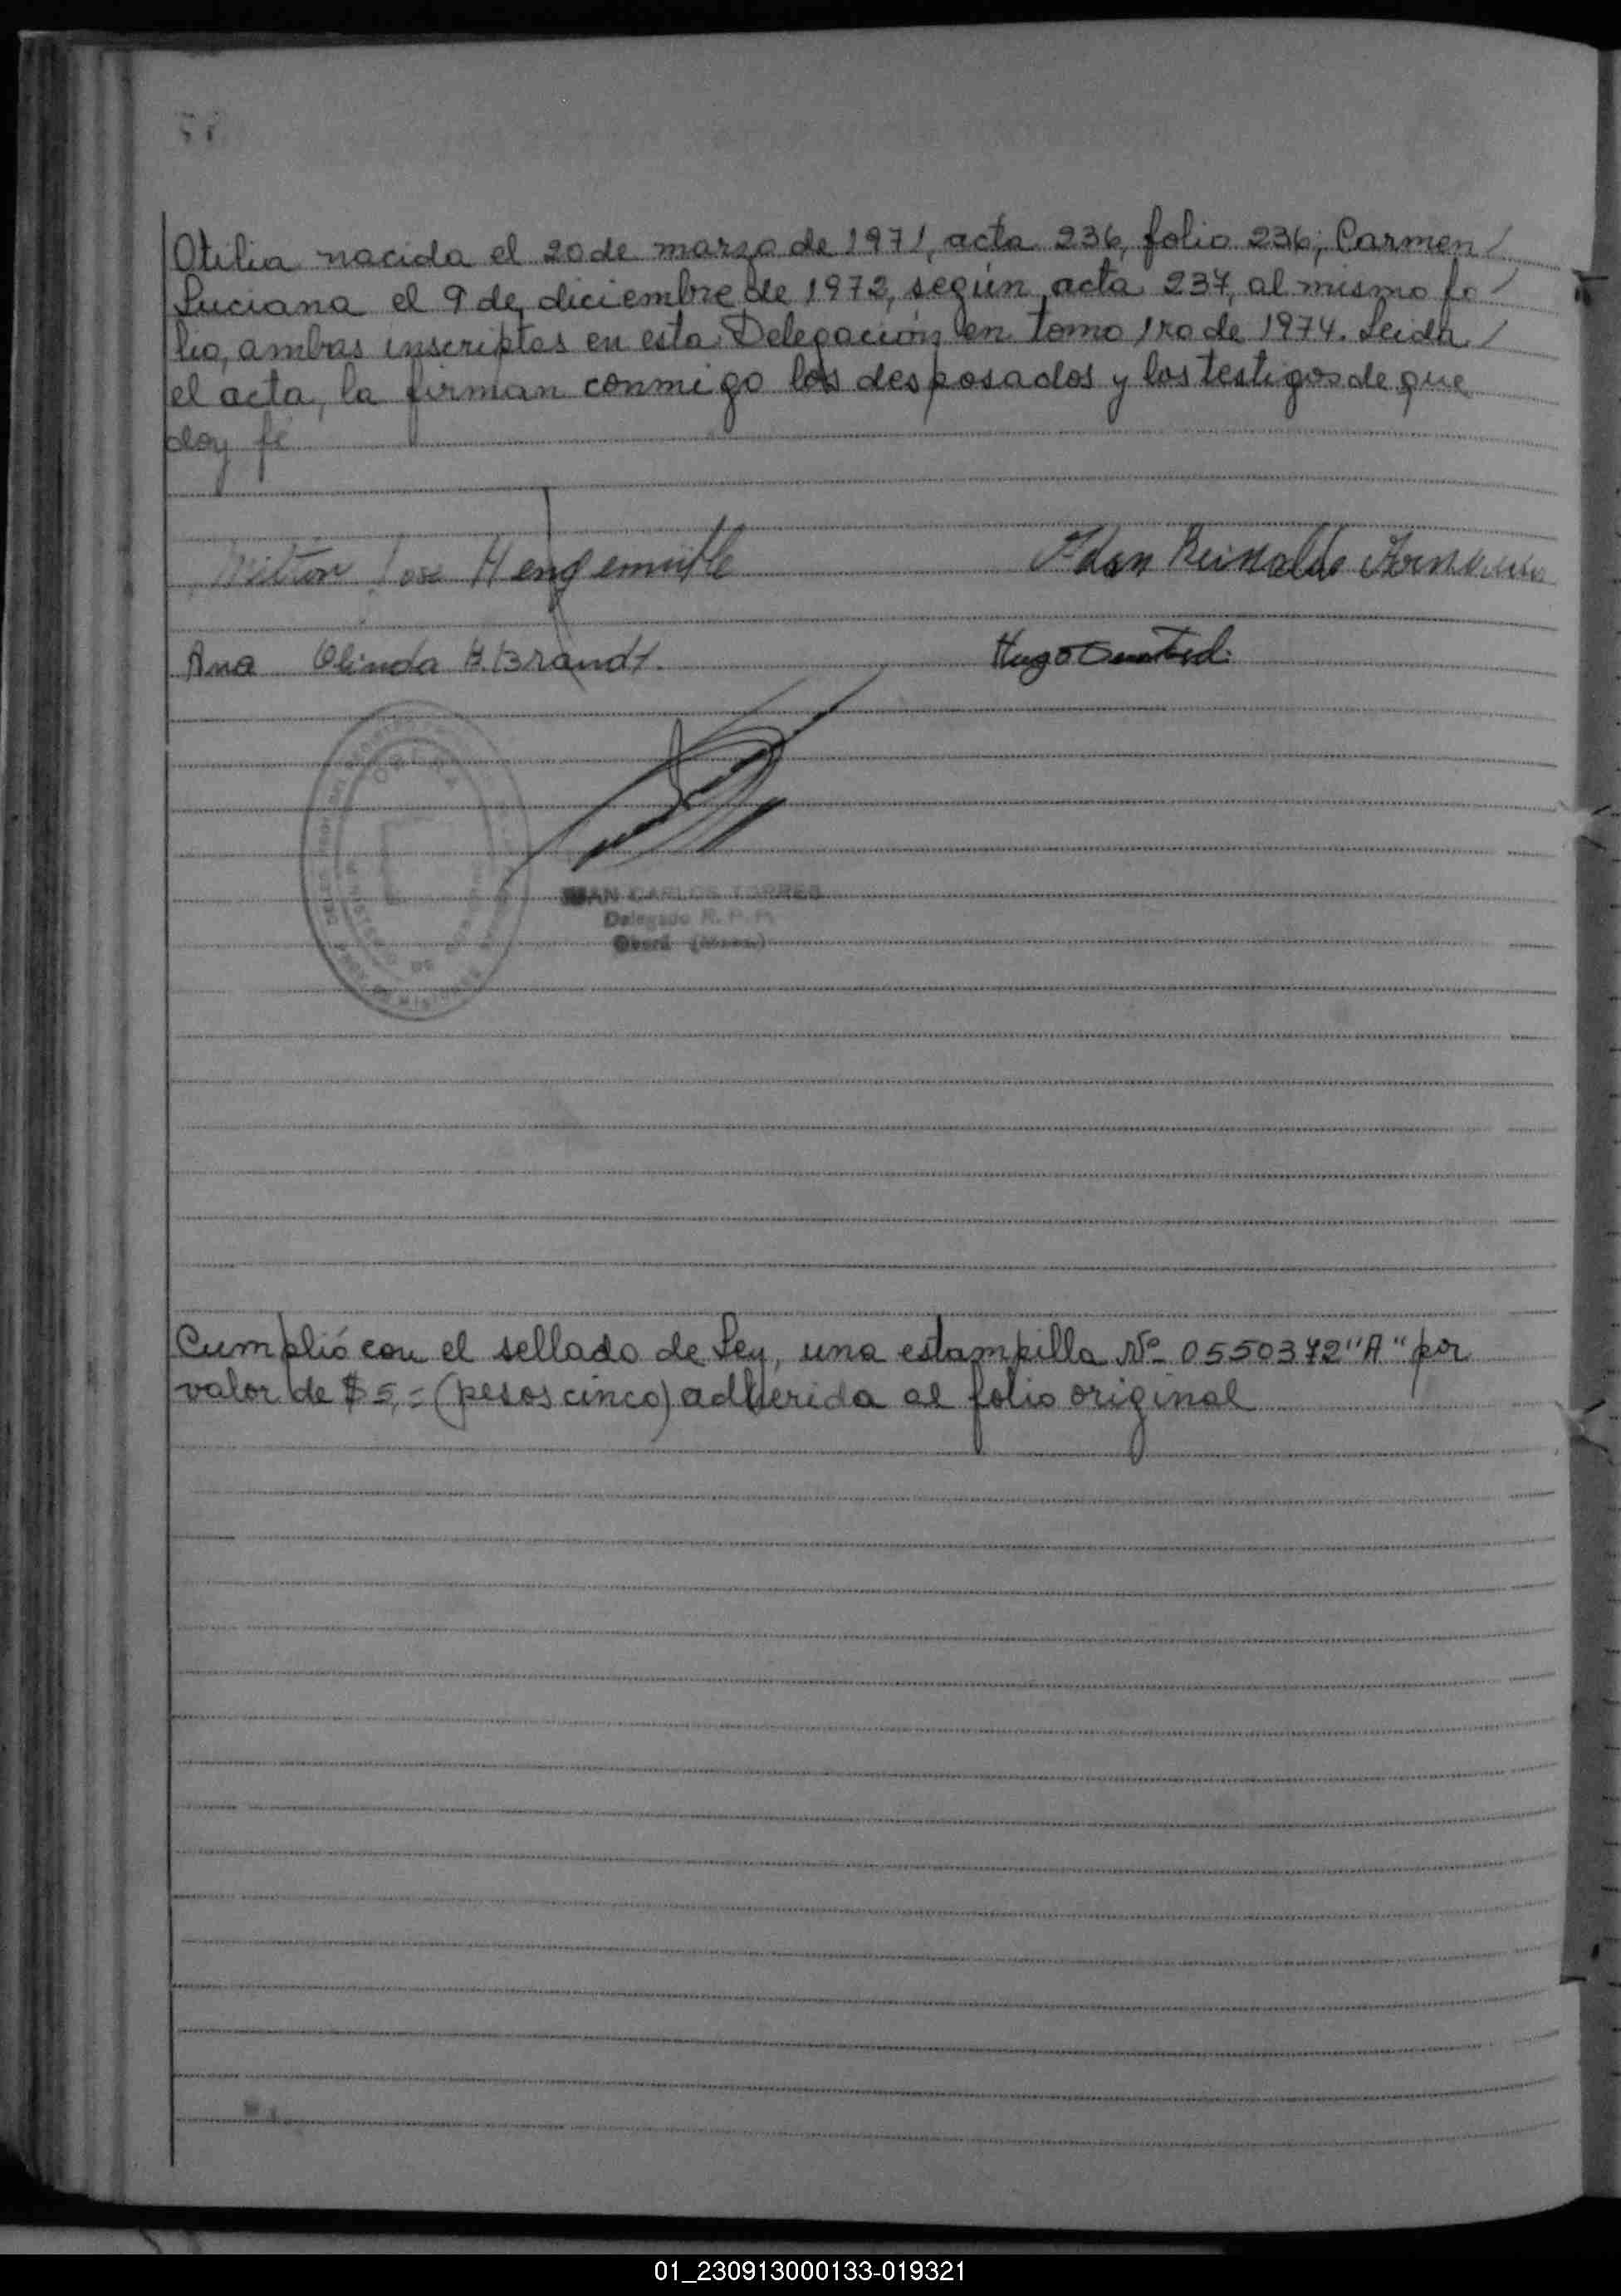 Otilia nacida el 20 de marzo de 1971, acta 236, folio 236; Carmen /
Luciana el 9 de diciembre de 1972, según acta 237, al mismo fo /
lio, ambas inscriptas en esta Delegación en tomo 1ro de 1974. Leida /
el acta, la firman conmigo los desposados y los testigos de que
doy fé
Jose Hengemühle
Reinaldo
Ana Olinda B. Brandt.
Hugo
OBERA
JUAN CARLOS TORRES
Delegado R. P. P.
Oberá (Mnes.)
Cumplió con el sellado de Ley, una estampilla Nº 0550372 "A" por
valor de $ 5,= (pesos cinco) adherida al folio original
01_230913000133-019321